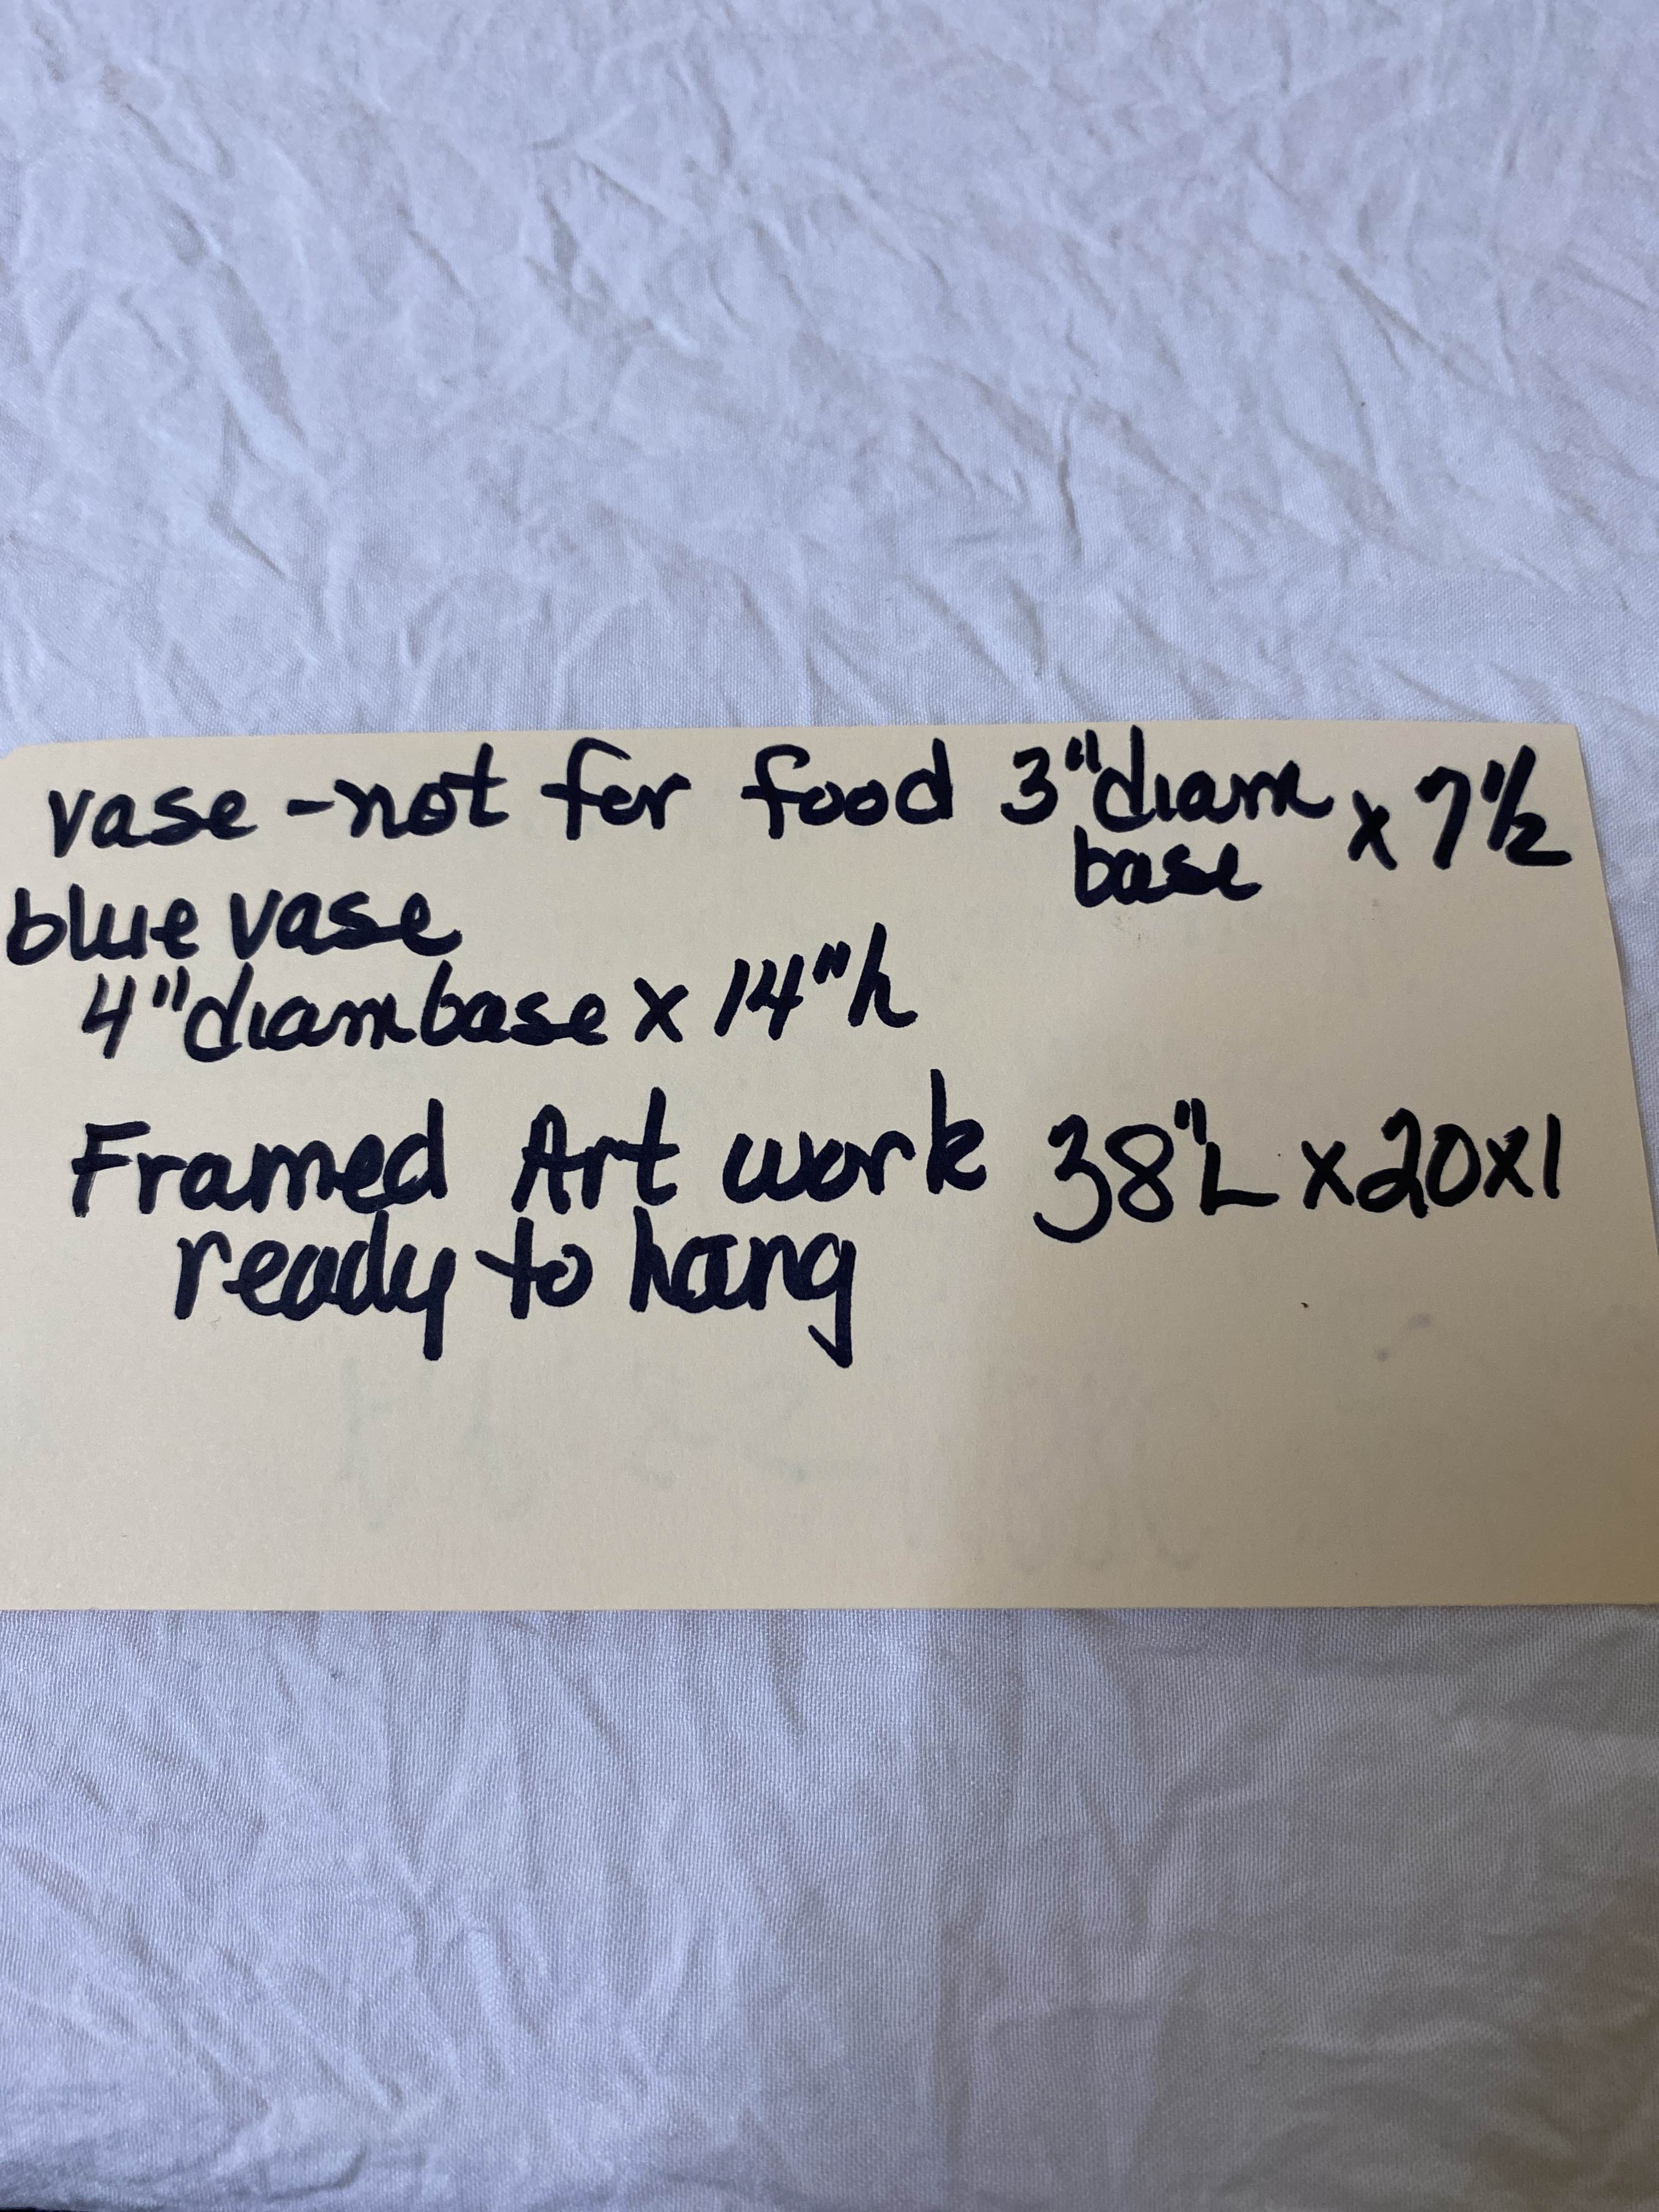 vase - not for food 3" diam x 7 1/2
base
blue vase
4" diam base x 14" h
Framed Art work 38" L x 20 x 1
ready to hang